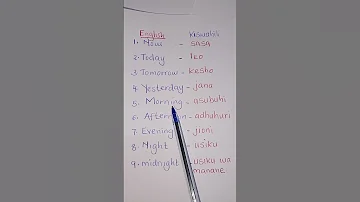 English Kiswahili
1. Now - sasa
2. Today - leo
3. Tomorrow - kesho
4. Yesterday - jana
5. Morning - asubuhi
6. Afternoon - adhuhuri
7. Evening - jioni
8. Night - usiku
9. midnight - usiku wa
manane